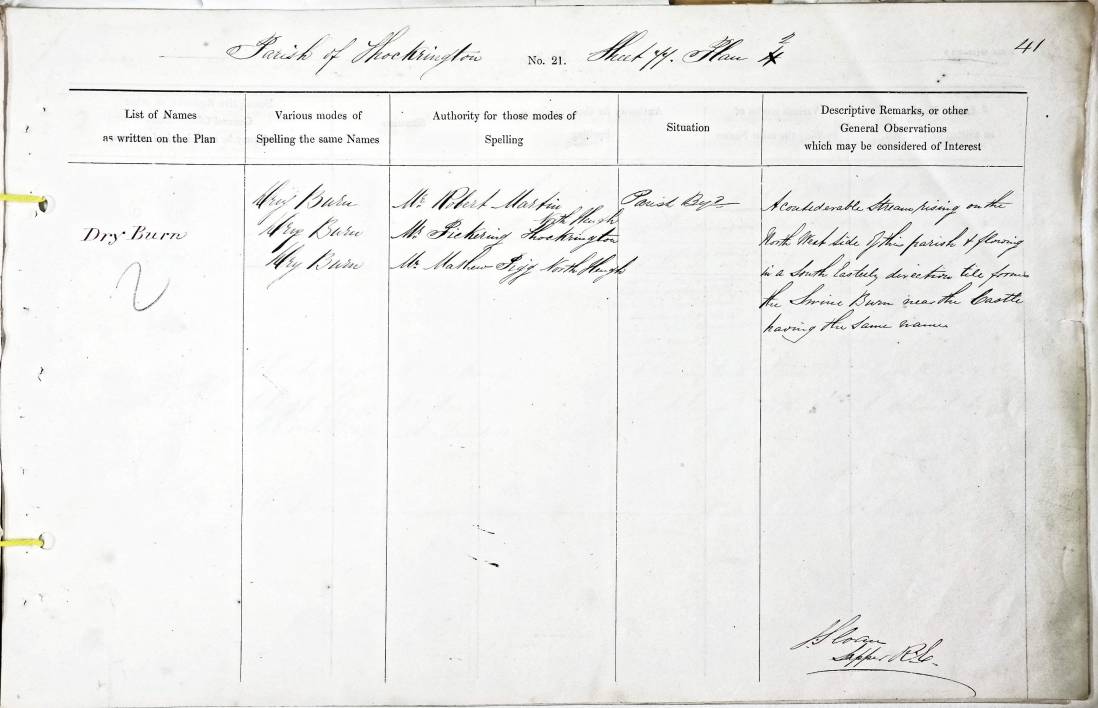 41
Parish of Thockrington No. 21. Sheet 77. Plan 2
List of Names
as written on the Plan
Various modes of
Spelling the same Names
Authority for those modes of
Spelling
Situation
Descriptive Remarks, or other
General Observations
which may be considered of Interest
Dry Burn
2
Dry Burn
Dry Burn
Dry Burn
Mr. Robert Martin
North Heugh
Mr. Pickering Thockrington
Mr. Mathew Pigg North Heugh
Parish By.
A considerable Stream rising on the
North West side of this parish & flowing
in a South Easterly direction till forms
the Swine Burn near the Castle
having the same name
J. Sloan
Sapper R.E.